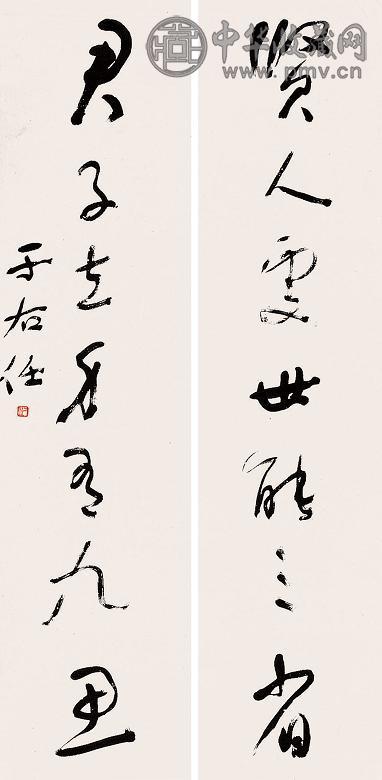 中华收藏网
www.pmv.cn
贤人处世能三省
君子立身有九思
于右任